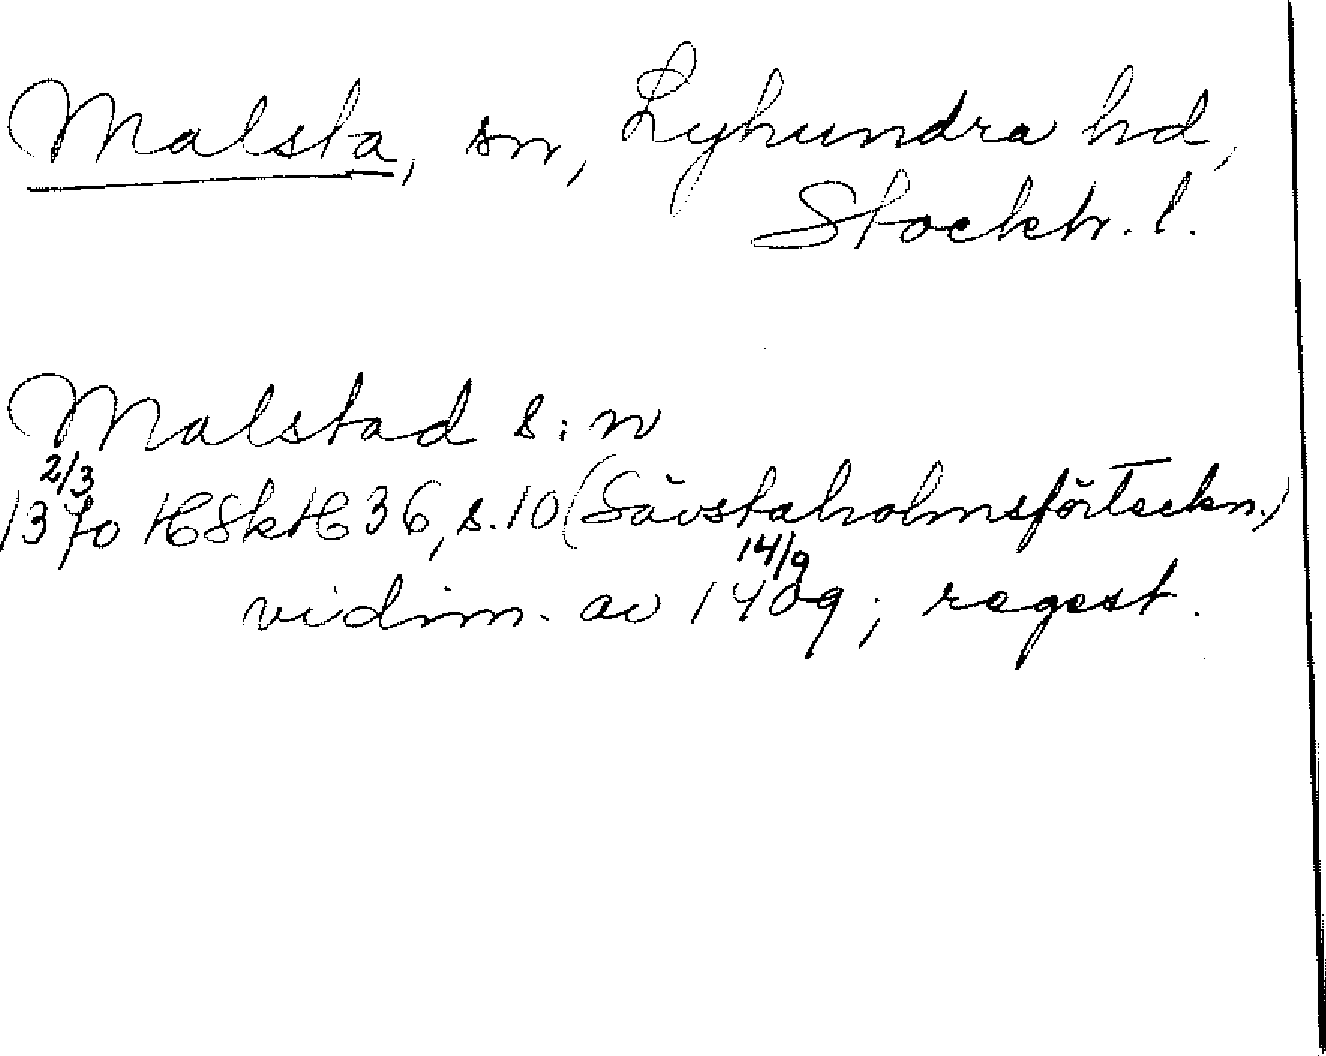 Malsta, sn, Lyhundra hd,
Stockh. l.
Malstad s:n
2/3
1370 HSkH 36, s. 10 (Sävstaholmsförteckn.)
14/9
vidim. av 1409; regest.